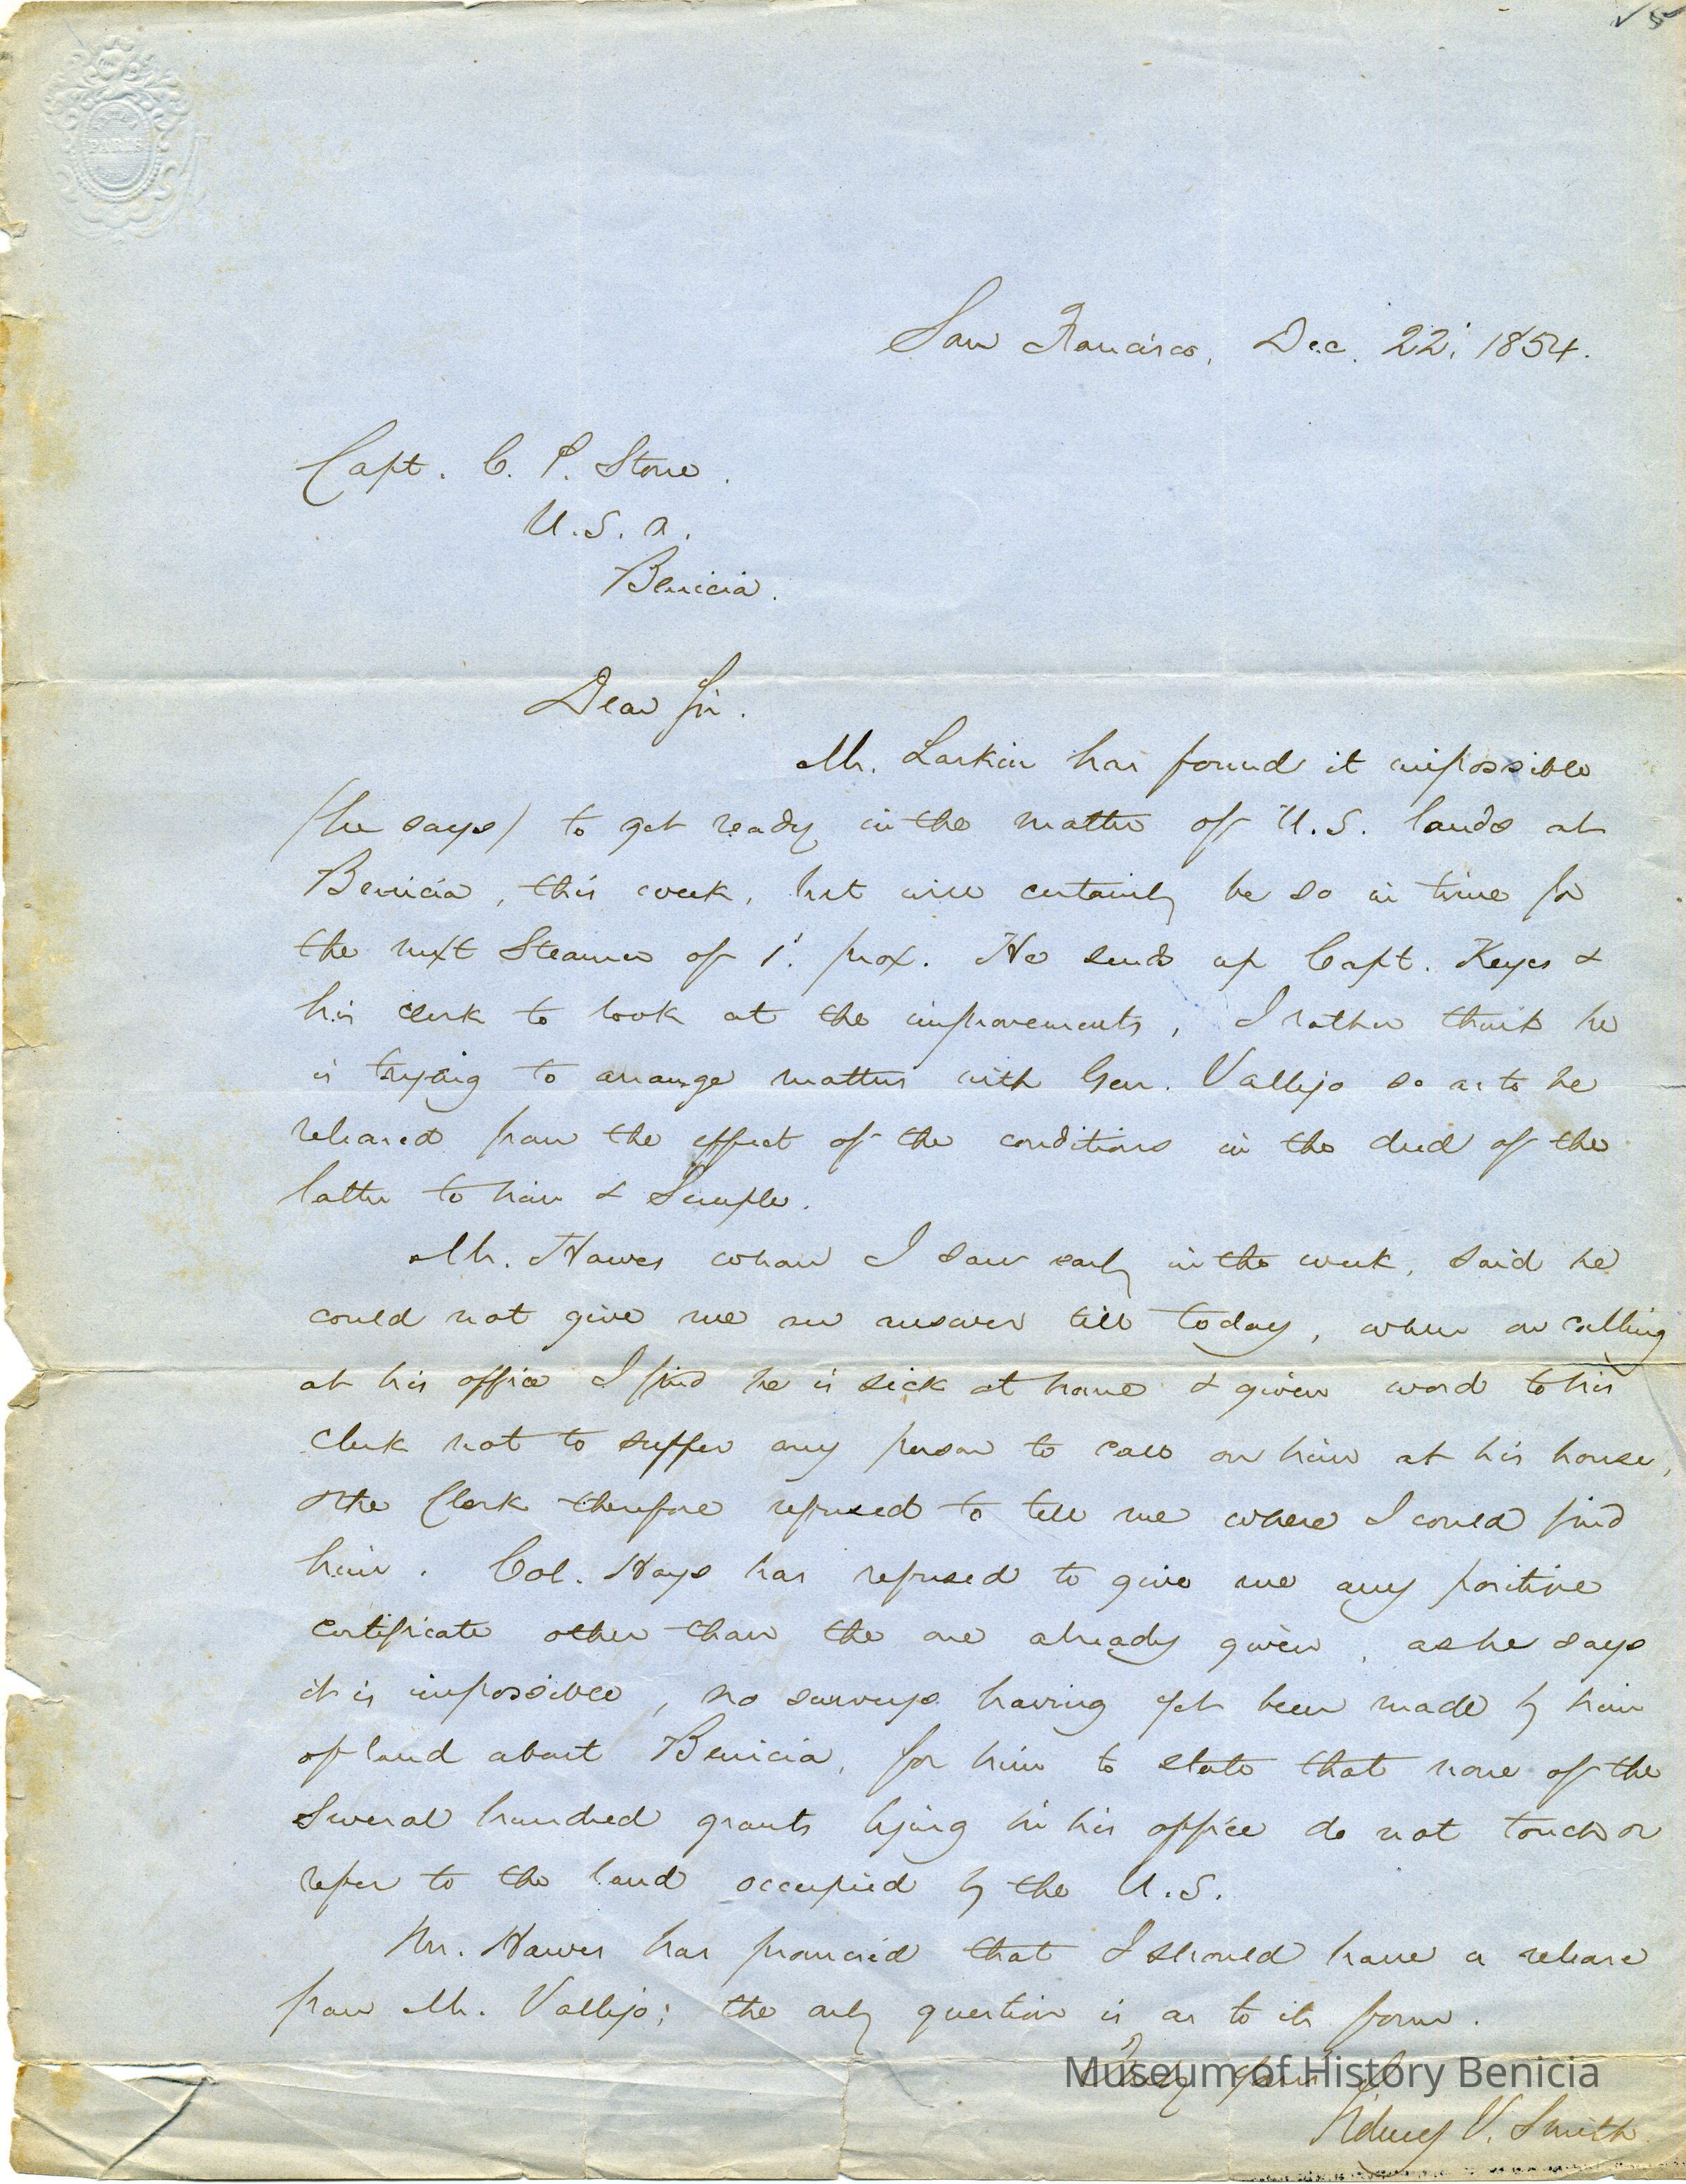 PARIS
San Francisco, Dec. 22, 1854.
Capt. C. P. Stone.
U. S. A.
Benicia.
Dear Sir.
Mr. Larkin has found it impossible
(he says) to get ready in the matter of U. S. lands at
Benicia, this week, but will certainly be so in time for
the next Steamer of 1. prox. He sends up Capt. Keyes &
his clerk to look at the improvements, I rather think he
is trying to arrange matters with Gen. Vallejo so as to be
released from the effect of the conditions in the deed of the
latter to him & Semple.
Mr. Hawes whom I saw early in the week, said he
could not give me an answer till today, when on calling
at his office I find he is sick at home & given word to his
clerk not to suffer any person to call on him at his house,
& the Clerk therefore refused to tell me where I could find
him. Col. Hays has refused to give me any positive
certificate other than the one already given, as he says
it is impossible, no surveys having yet been made by him
of land about Benicia, for him to state that none of the
several hundred grants lying in his office do not touch or
refer to the land occupied by the U. S.
Mr. Hawes has promised that I should have a release
from Mr. Vallejo; the only question is as to its form.
Truly Yours
Museum of History Benicia
Sidney V. Smith